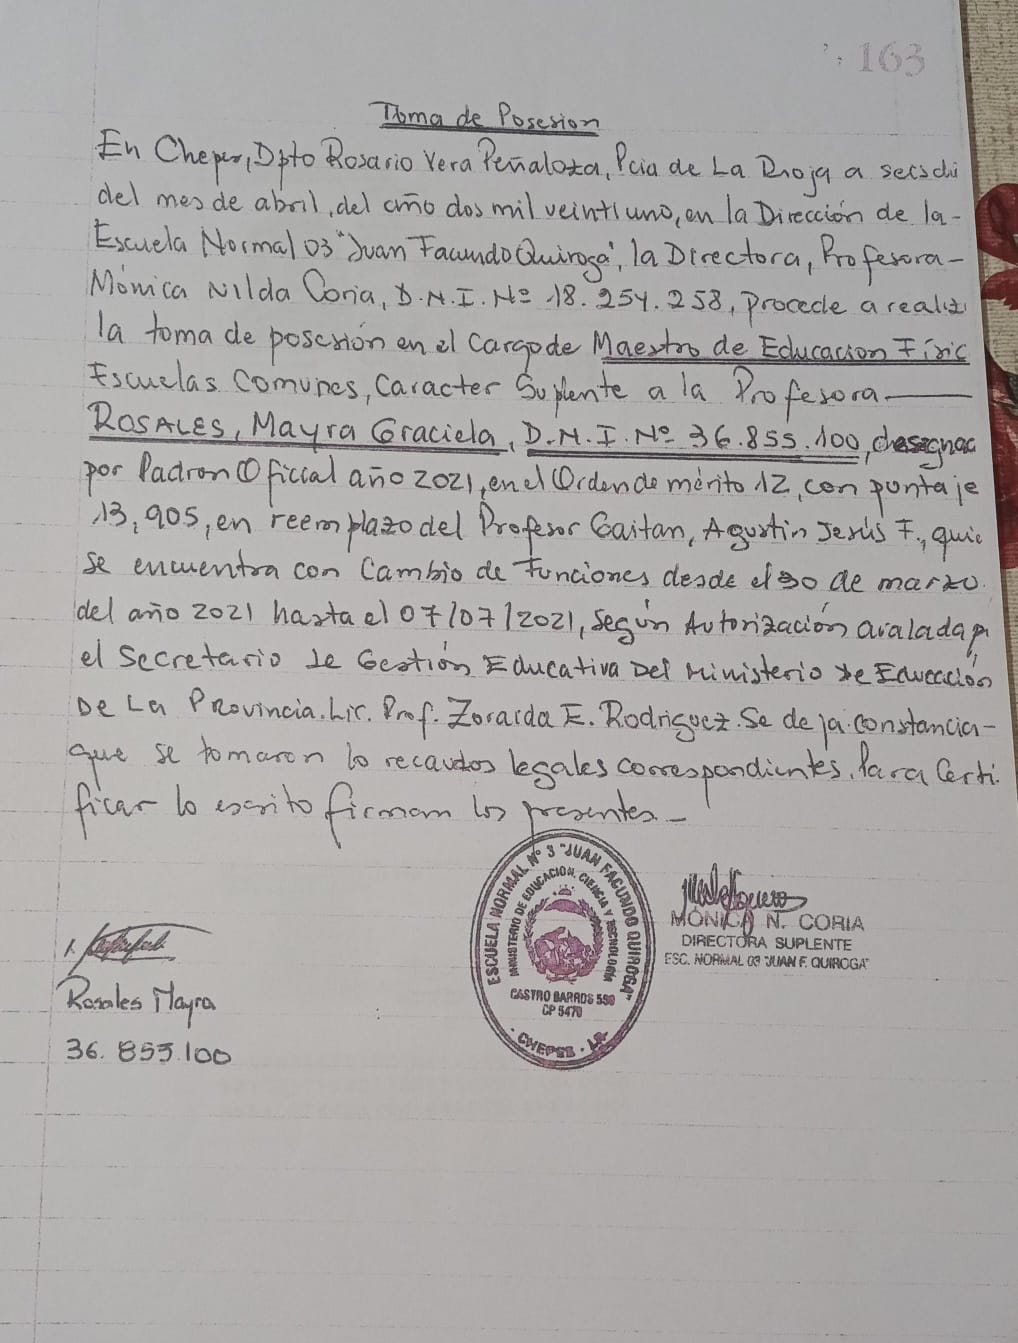 163
Toma de Posesion
En Chepes, Dpto Rosario Vera Peñaloza, Pcia de La Rioja a seis di
del mes de abril, del año dos mil veintiuno, en la Dirección de la-
Escuela Normal 03 "Juan Facundo Quiroga", la Directora, Profesora-
Mónica Nilda Coria, D.N.I. Nº 18.254.258, procede a realiz
la toma de posesión en el Cargo de Maestro de Educacion Físic
Escuelas Comunes, Caracter Suplente a la Profesora
ROSALES, Mayra Graciela, D.N.I. Nº 36.855.100, designad
por Padron Oficial año 2021, en el Orden de mérito 12, con puntaje
13,905, en reemplazo del Profesor Gaitan, Agustin Jesús F., quie
se encuentra con Cambio de Funciones desde el 30 de marzo.
del año 2021 hasta el 07/07/2021, Según Autorización avalada p
el Secretario De Gestión Educativa Del Ministerio De Educación
De La Provincia. Lic. Prof. Zoraida E. Rodriguez. Se deja constancia-
que se tomaron lo recaudos legales correspondientes. Para Certi
ficar lo escrito firmam los presentes.-
ESCUELA NORMAL Nº 3 "JUAN FACUNDO QUIROGA"
MINISTERIO DE EDUCACION, CIENCIA Y TECNOLOGIA
CASTRO BARROS 590
CP 5470
CHEPES - LR
MONICA N. CORIA
DIRECTORA SUPLENTE
ESC. NORMAL 03 "JUAN F. QUIROGA"
Rosales Mayra
36.855.100